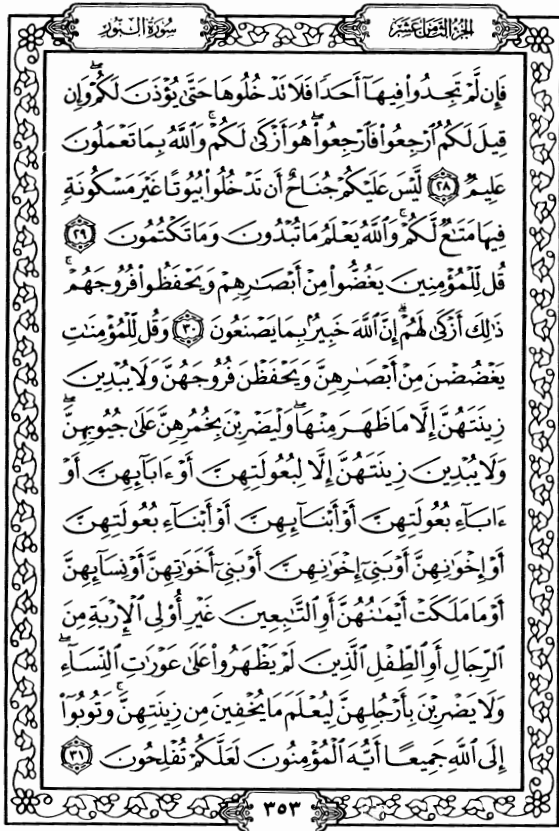 الجزء الثامن عشر
سورة النور
فَإِن لَّمْ تَجِدُوا۟ فِيهَآ أَحَدًا فَلَا تَدْخُلُوهَا حَتَّىٰ يُؤْذَنَ لَكُمْ ۖ وَإِن
قِيلَ لَكُمُ ٱرْجِعُوا۟ فَٱرْجِعُوا۟ ۖ هُوَ أَزْكَىٰ لَكُمْ ۚ وَٱللَّهُ بِمَا تَعْمَلُونَ
عَلِيمٌ ٢٨ لَّيْسَ عَلَيْكُمْ جُنَاحٌ أَن تَدْخُلُوا۟ بُيُوتًا غَيْرَ مَسْكُونَةٍ
فِيهَا مَتَٰعٌ لَّكُمْ ۚ وَٱللَّهُ يَعْلَمُ مَا تُبْدُونَ وَمَا تَكْتُمُونَ ٢٩
قُل لِّلْمُؤْمِنِينَ يَغُضُّوا۟ مِنْ أَبْصَٰرِهِمْ وَيَحْفَظُوا۟ فُرُوجَهُمْ ۚ
ذَٰلِكَ أَزْكَىٰ لَهُمْ ۗ إِنَّ ٱللَّهَ خَبِيرٌۢ بِمَا يَصْنَعُونَ ٣٠ وَقُل لِّلْمُؤْمِنَٰتِ
يَغْضُضْنَ مِنْ أَبْصَٰرِهِنَّ وَيَحْفَظْنَ فُرُوجَهُنَّ وَلَا يُبْدِينَ
زِينَتَهُنَّ إِلَّا مَا ظَهَرَ مِنْهَا ۖ وَلْيَضْرِبْنَ بِخُمُرِهِنَّ عَلَىٰ جُيُوبِهِنَّ ۖ
وَلَا يُبْدِينَ زِينَتَهُنَّ إِلَّا لِبُعُولَتِهِنَّ أَوْ ءَابَآئِهِنَّ أَوْ
ءَابَآءِ بُعُولَتِهِنَّ أَوْ أَبْنَآئِهِنَّ أَوْ أَبْنَآءِ بُعُولَتِهِنَّ
أَوْ إِخْوَٰنِهِنَّ أَوْ بَنِىٓ إِخْوَٰنِهِنَّ أَوْ بَنِىٓ أَخَوَٰتِهِنَّ أَوْ نِسَآئِهِنَّ
أَوْ مَا مَلَكَتْ أَيْمَٰنُهُنَّ أَوِ ٱلتَّٰبِعِينَ غَيْرِ أُو۟لِى ٱلْإِرْبَةِ مِنَ
ٱلرِّجَالِ أَوِ ٱلطِّفْلِ ٱلَّذِينَ لَمْ يَظْهَرُوا۟ عَلَىٰ عَوْرَٰتِ ٱلنِّسَآءِ ۖ
وَلَا يَضْرِبْنَ بِأَرْجُلِهِنَّ لِيُعْلَمَ مَا يُخْفِينَ مِن زِينَتِهِنَّ ۚ وَتُوبُوٓا۟
إِلَى ٱللَّهِ جَمِيعًا أَيُّهَ ٱلْمُؤْمِنُونَ لَعَلَّكُمْ تُفْلِحُونَ ٣١
٣٥٣